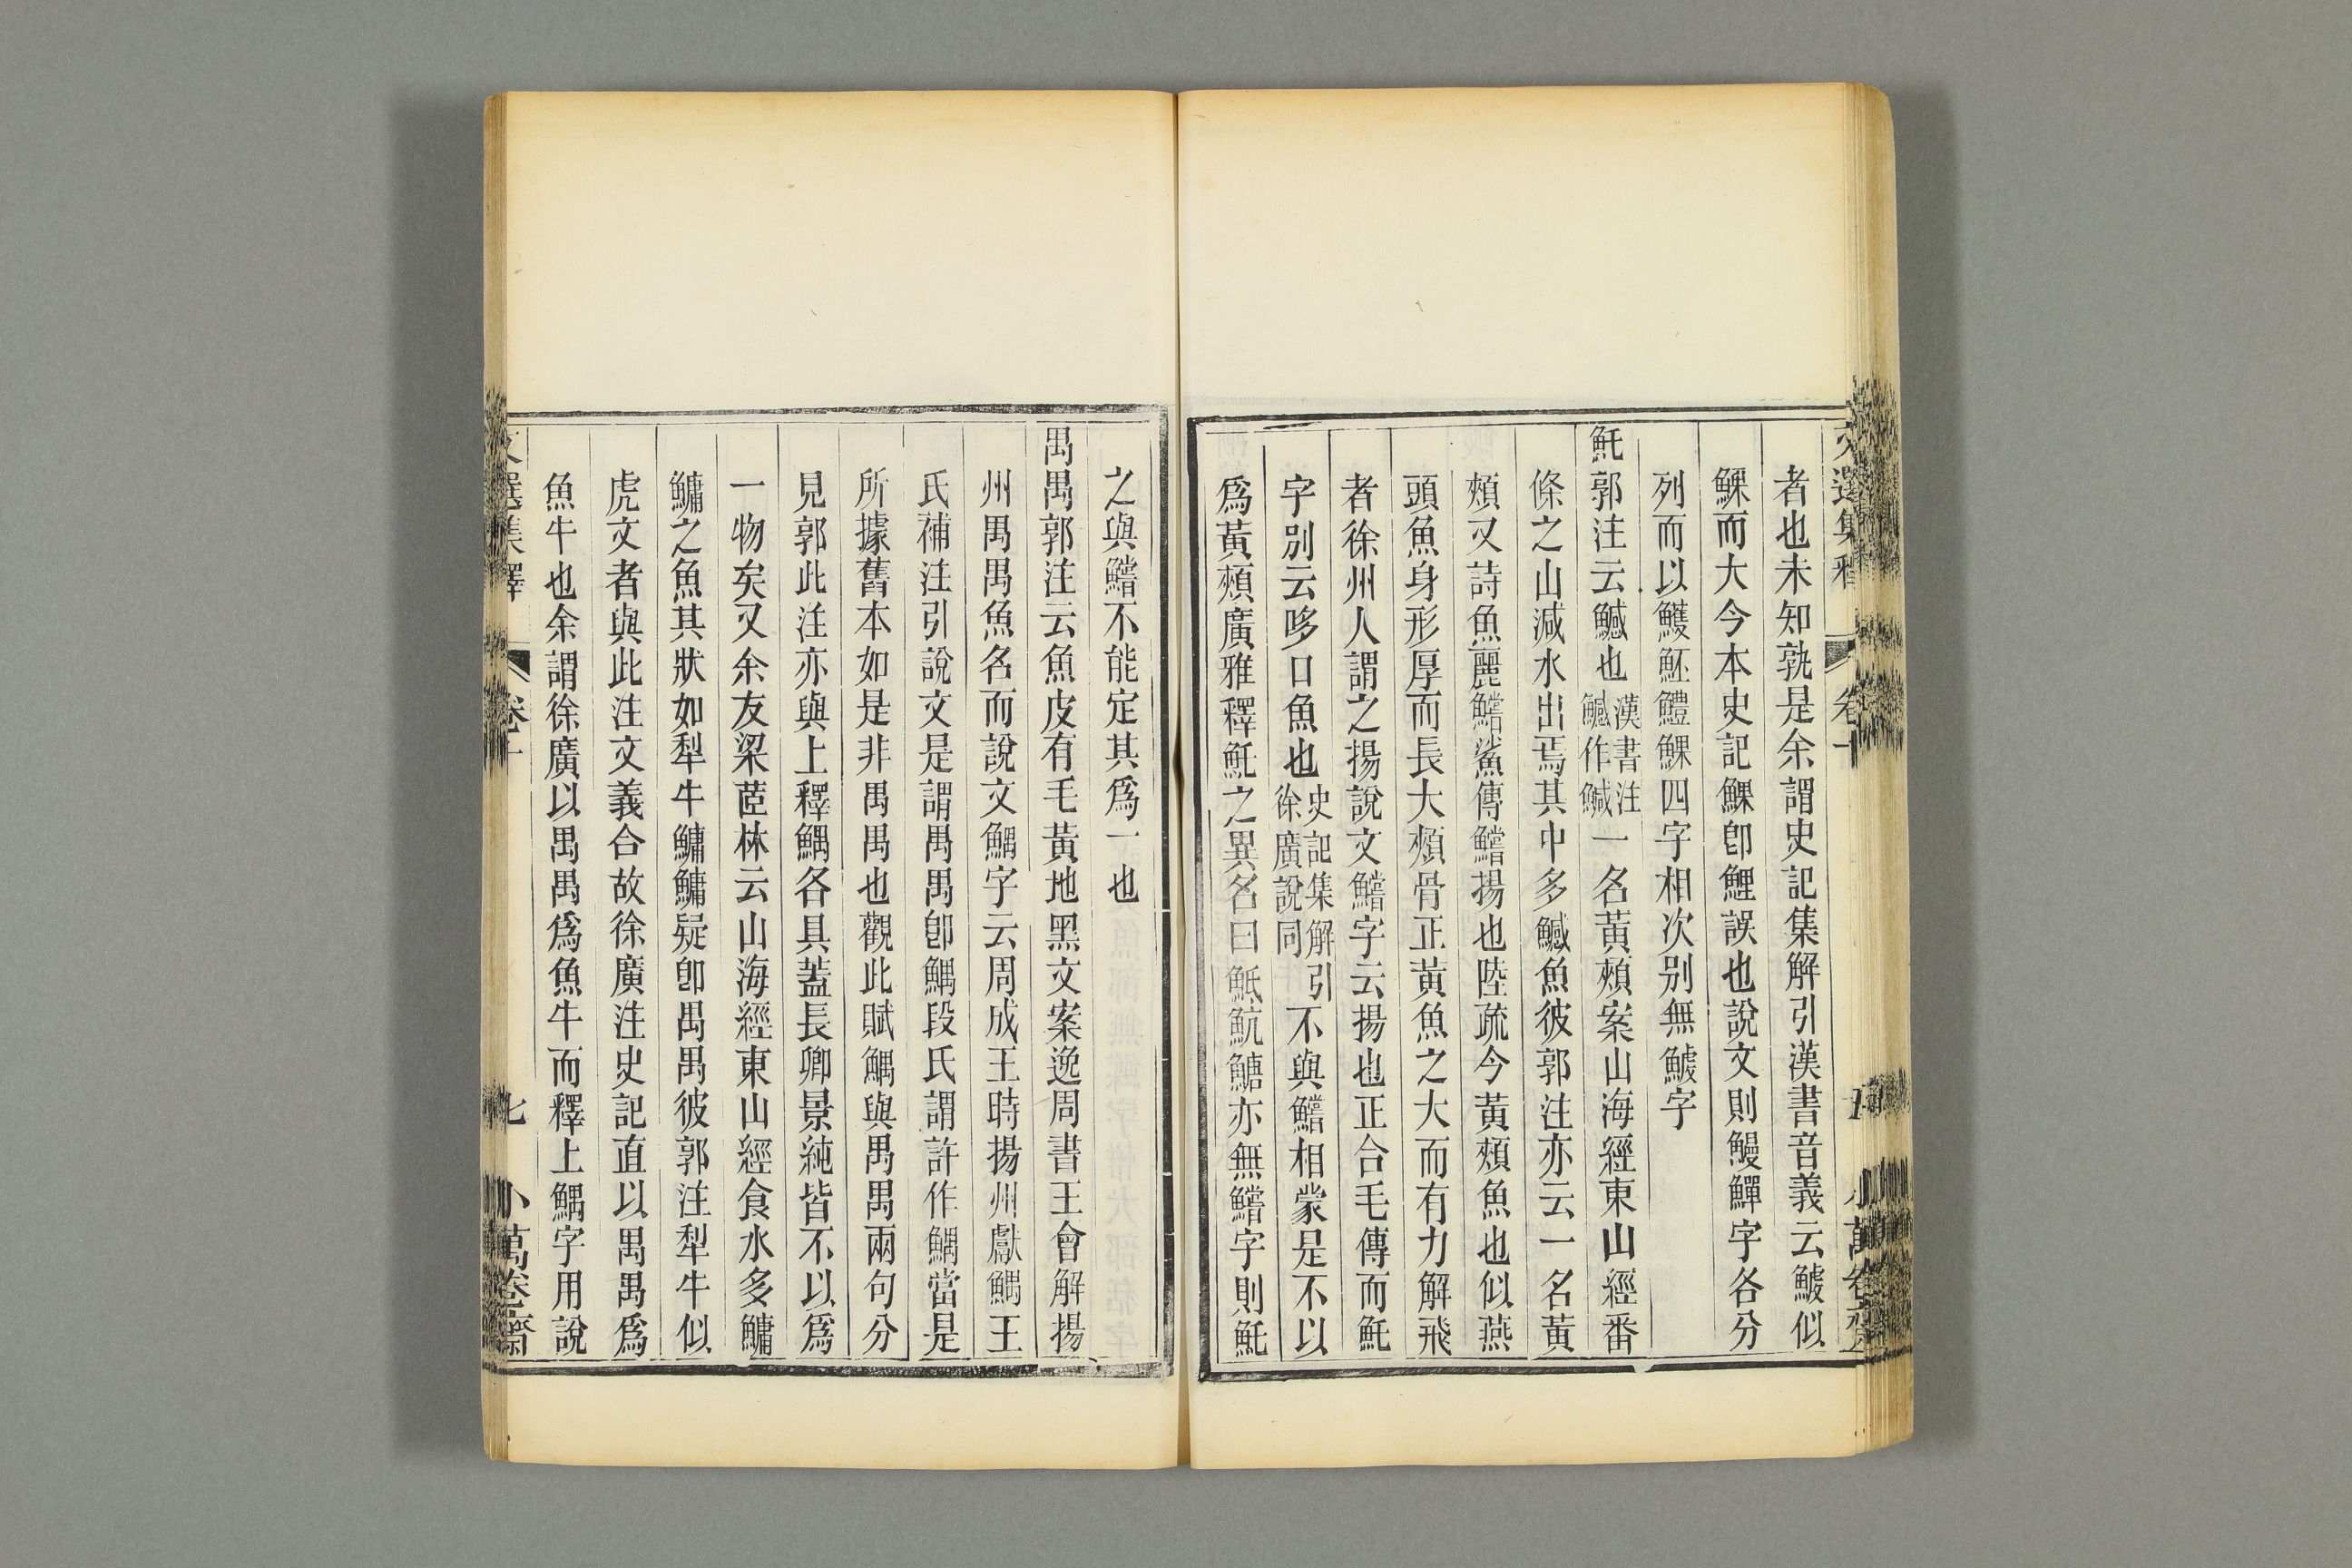 者也未知孰是余謂史記集解引漢書音義云鯪似
鰥而大今本史記鰥卽鯉誤也說文則鰻鱓字各分
列而以鱯魾鱧鰥四字相次別無鯪字
魠郭注云鰄也漢書注鰄作鰔一名黃頰案山海經東山經番
條之山減水出焉其中多鰄魚彼郭注亦云一名黃
頰又詩魚麗鱨鯊傳鱨揚也陸疏今黃頰魚也似燕
頭魚身形厚而長大頰骨正黃魚之大而有力解飛
者徐州人謂之揚說文鱨字云揚也正合毛傳而魠
字別云哆口魚也史記集解引徐廣說同不與鱨相蒙是不以
爲黃頰廣雅釋魠之異名曰䱃魧鱅亦無鱨字則魠
之與鱨不能定其爲一也
禺禺郭注云魚皮有毛黃地黑文案逸周書王會解揚
州禺禺魚名而說文鰅字云周成王時揚州獻鰅王
氏補注引說文是謂禺禺卽鰅段氏謂許作鰅當是
所據舊本如是非禺禺也觀此賦鰅與禺禺兩句分
見郭此注亦與上釋鰅各具蓋長卿景純皆不以爲
一物矣又余友梁茝林云山海經東山經食水多鱅
鱅之魚其狀如犁牛鱅鱅疑卽禺禺彼郭注犁牛似
虎文者與此注文義合故徐廣注史記直以禺禺爲
魚牛也余謂徐廣以禺禺爲魚牛而釋上鰅字用說
文選集釋 卷十 七 小萬卷齋